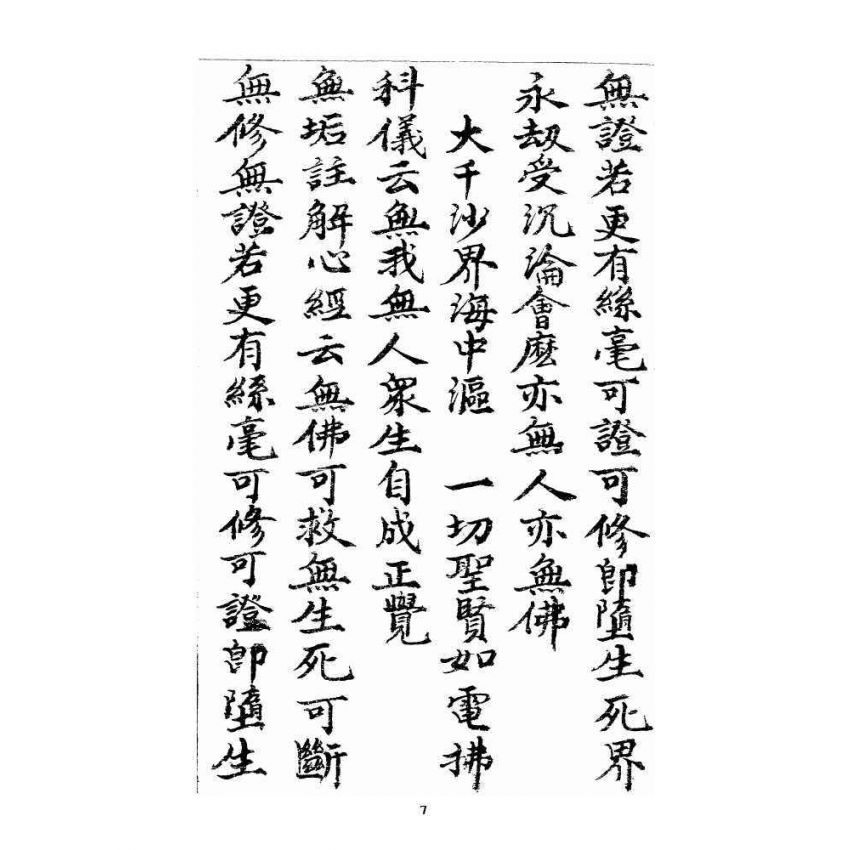 無證若更有絲毫可證可修即墮生死界
永劫受沉淪會麽亦無人亦無佛
大千沙界海中漚 一切聖賢如電拂
科儀云無我無人衆生自成正覺
無垢註解心經云無佛可救無生死可斷
無修無證若更有絲毫可修可證即墮生
7